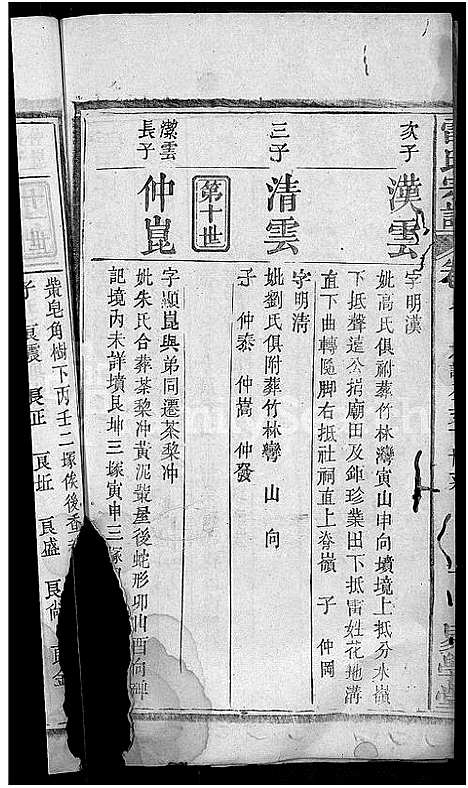 雷氏宗譜
次子
漢雲
字明漢
妣高氏俱祔葬竹林灣寅山申向墳境上抵分水嶺
下抵聲遠公捐廟田及鉢珍業田下抵雷姓花地溝
直下曲轉隨脚右抵社祠直上脊嶺 子 仲岡
三子
清雲
字明清
妣劉氏俱附葬竹林灣 山 向
子 仲泰 仲嵩 仲發
第十世
潔雲
長子
仲崑
字顯崑與弟同遷茶黎冲
妣朱氏合葬茶黎冲黃泥𡋾屋後蛇形卯山酉向碑
記境內未詳墳艮坤三塚寅申三塚
十一世
柴皂角樹下丙壬二塚俟後香
子 艮震 艮正 艮坵 艮盛